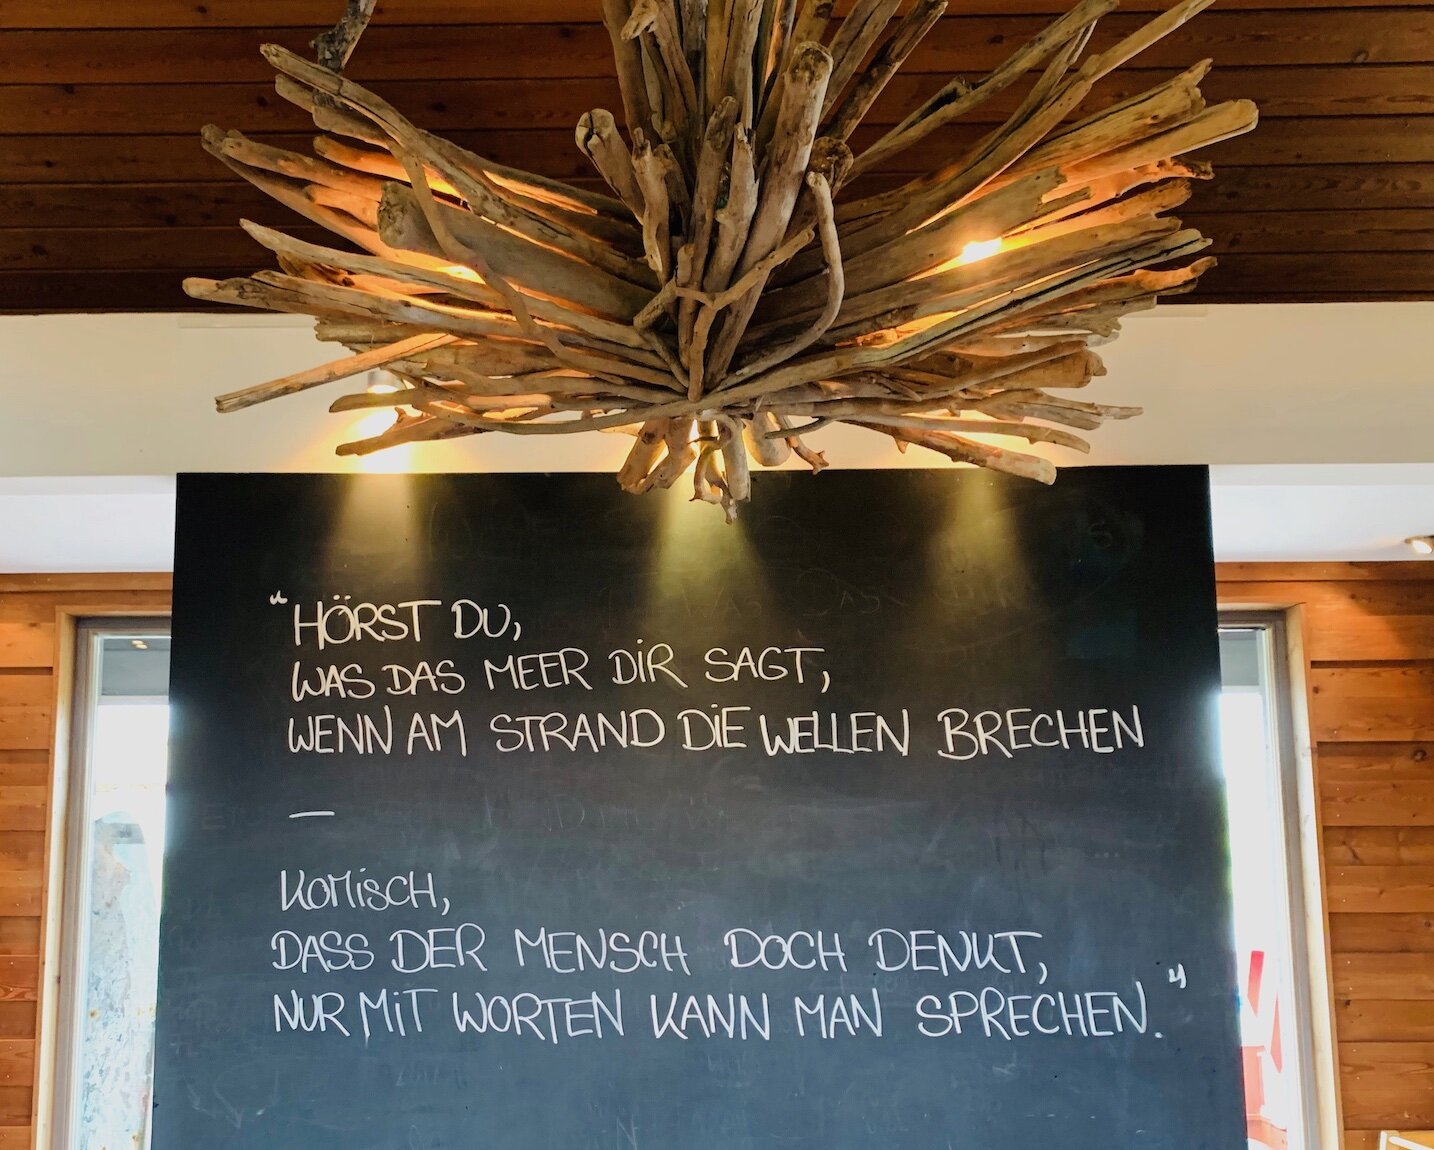 "HÖRST DU,
WAS DAS MEER DIR SAGT,
WENN AM STRAND DIE WELLEN BRECHEN
—
KOMISCH,
DASS DER MENSCH DOCH DENKT,
NUR MIT WORTEN KANN MAN SPRECHEN."